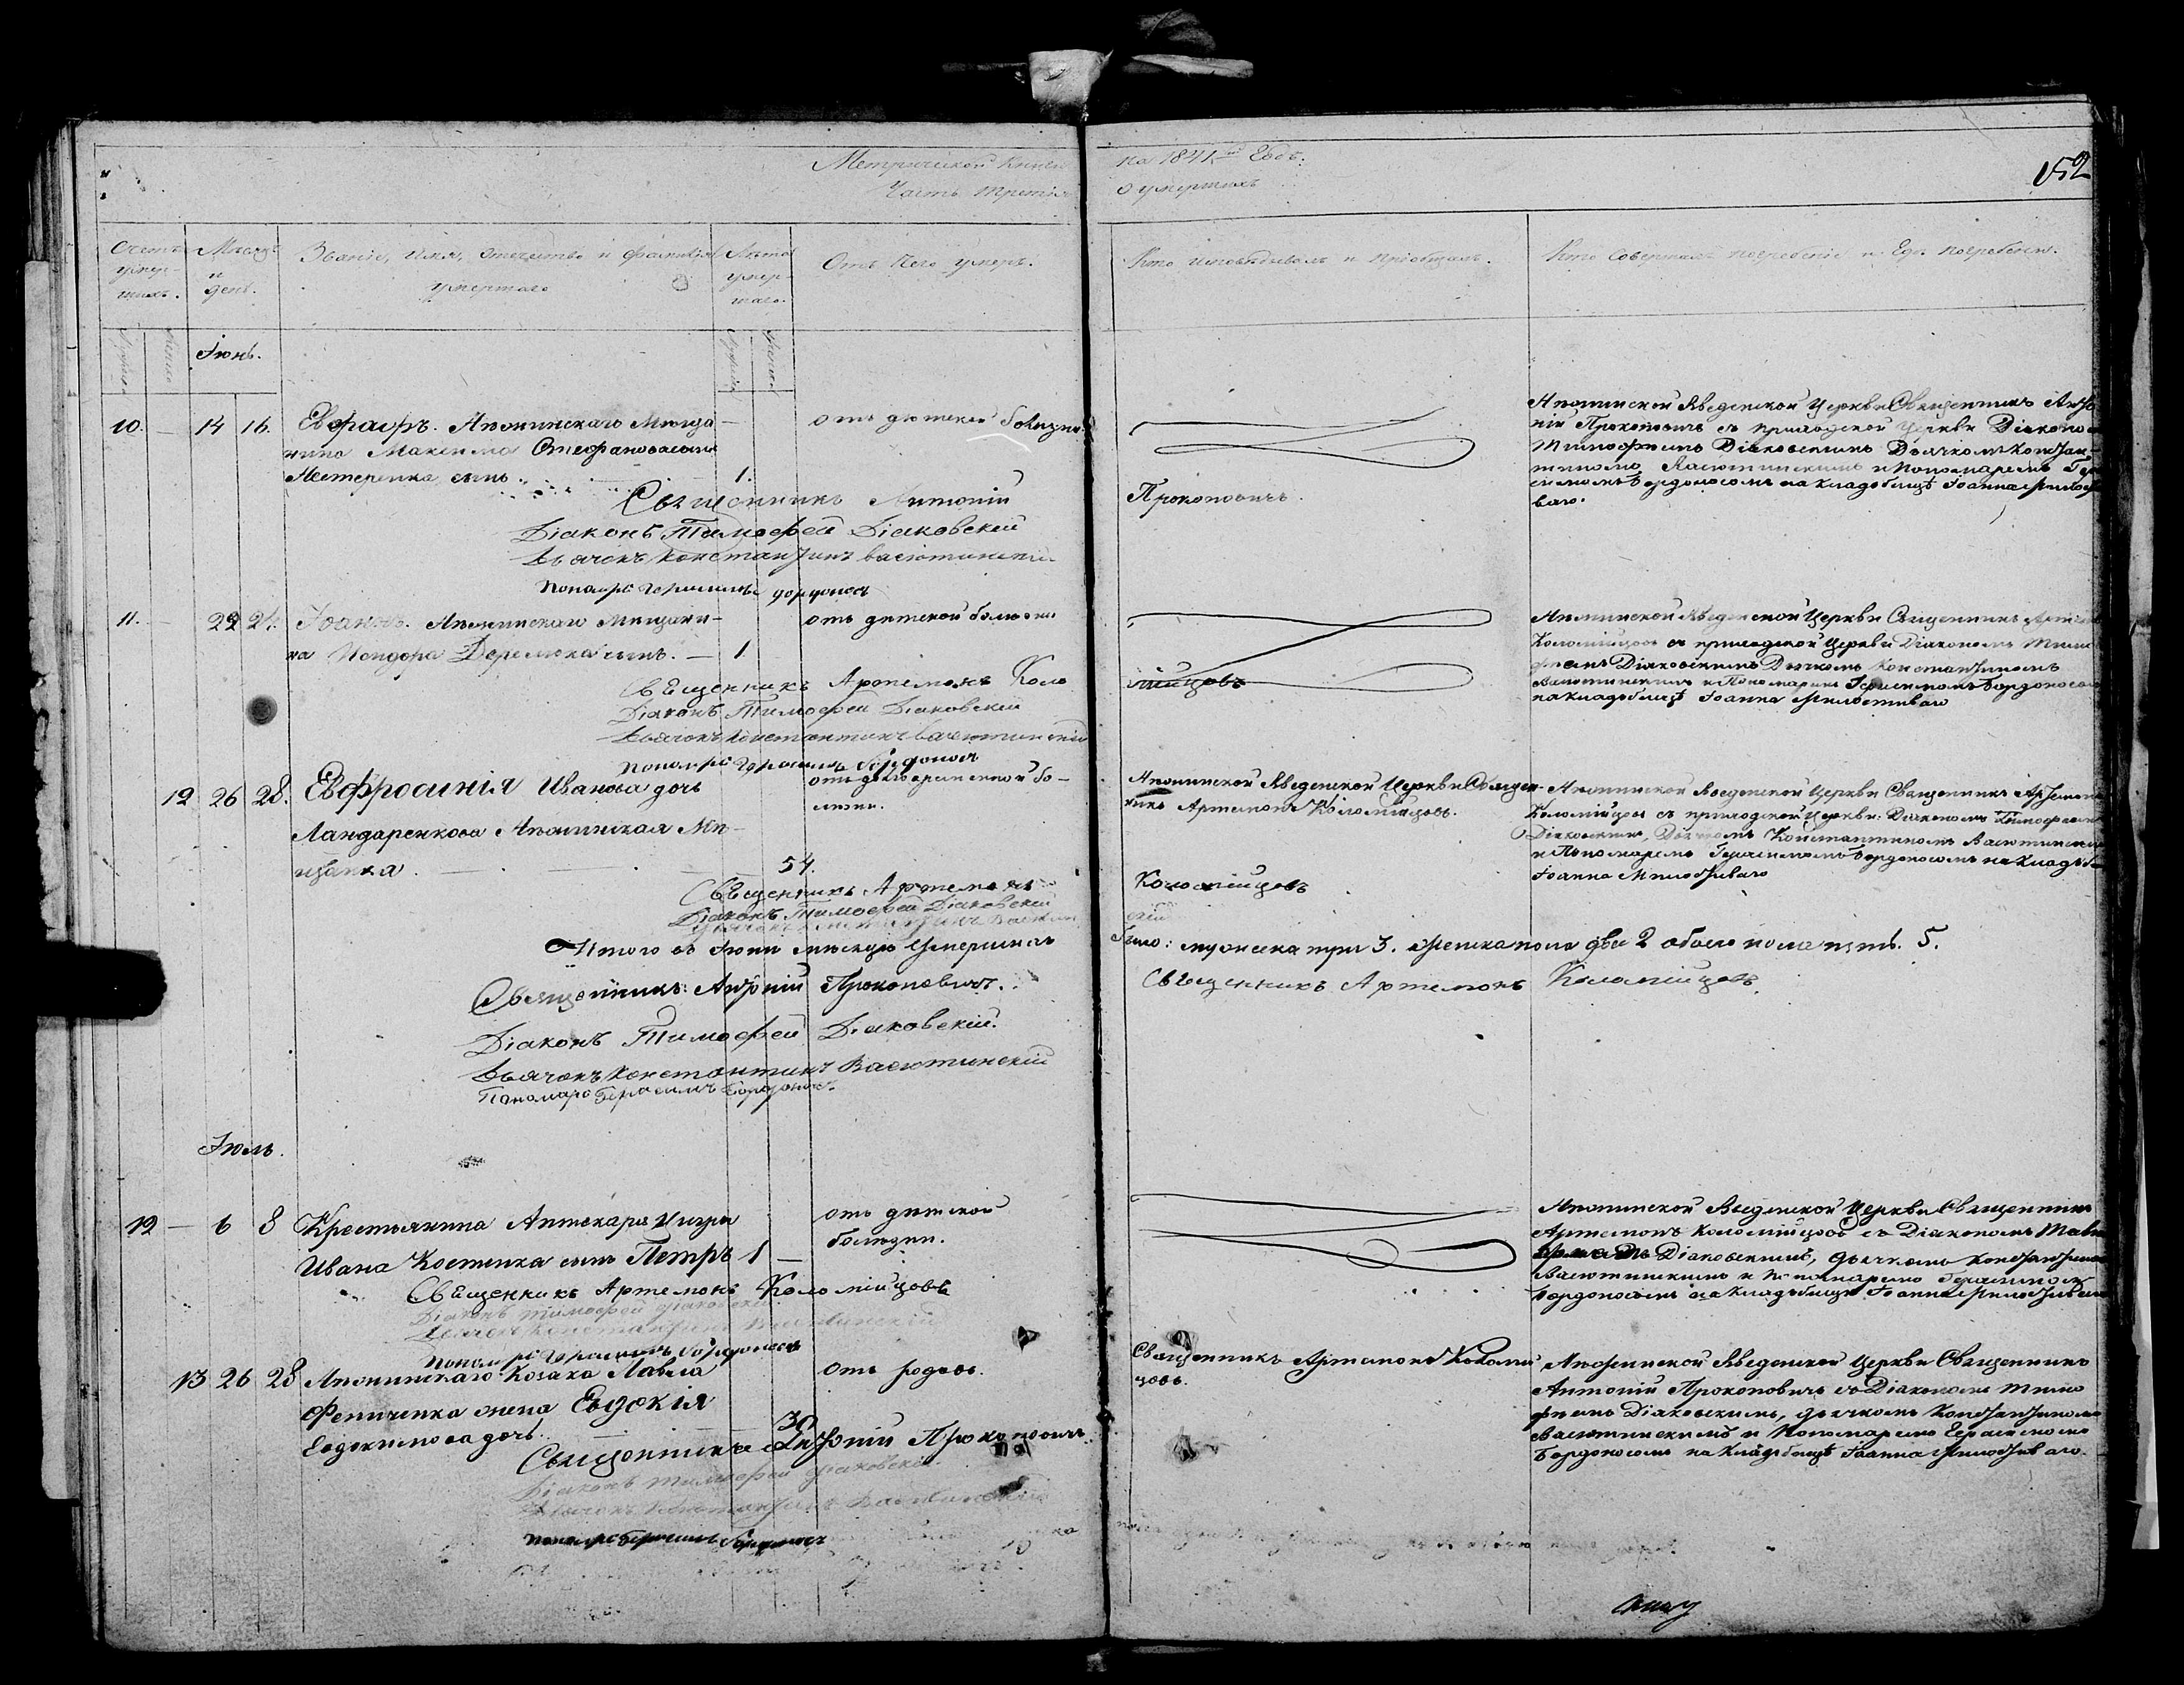 Метрической Книги на 1841й Годъ.
Часть третія о умершихъ
152
Счетъ умер-шихъ.
Мѣсяцъ и день.
Званіе, Имя, Отечество и фамилія умершаго
Лѣта умер-шаго.
Отъ чего умеръ.
Кто исповѣдывалъ и пріобщалъ.
Кто совершалъ погребеніе и гдѣ погребенъ.
Іюнь.
10. — 14 16.
Мѣща-
нина Максима Стефановасына
Нестеренка сынъ.
1.
отъ дѣтской болѣзни
Введенской Церкви Священникъ Анто
ній Прокоповичъ съ приходской Церкви Діакономъ
Тимофѣемъ Діаковскимъ Дьячкомъ Констан-
тиномъ Васютинскимъ и Пономаремъ Гера
симомъ Бордоносомъ на кладбищѣ Іоанна Милости
ваго.
Священникъ Антоній Прокоповичъ.
Діаконъ Тимофей Діаковскій
Дьячокъ Константинъ Васютинскій
Пономарь Герасимъ Бордоносъ
11. — 22 24.
Мѣщани-
на сынъ. — 1.
отъ дѣтской болѣзни
Введенской Церкви Священникъ
Коломійцовъ съ приходской Церкви Діакономъ Тимо
фѣемъ Діаковскимъ Дьячкомъ Константиномъ
Васютинскимъ и Пономаремъ Герасимомъ Бордоносомъ
на кладбищѣ Іоанна Милостиваго
Священникъ Артемонъ Коломійцовъ
Діаконъ Тимофей Діаковскій
Дьячокъ Константинъ Васютинскій
Пономарь Герасимъ Бордоносъ
12 26 28.
Евфросинія Иванова дочь
Ландаренкова Мѣ-
щанка.
54.
бо-
лѣзни.
Введенской Церкви Священ-
никъ Артемонъ Коломійцовъ.
Введенской Церкви Священникъ Артемонъ
Коломійцовъ съ приходской Церкви Діакономъ Тимофѣемъ
Діаковскимъ, Дьячкомъ Константиномъ Васютинскимъ
и Пономаремъ Герасимомъ Бордоносомъ на кладби
Іоанна Милостиваго
Священникъ Артемонъ Коломійцовъ
Діаконъ Тимофей Діаковскій
Итого въ Іюнѣ мѣсяцѣ умершихъ было: мужеска три 3. женска пола два 2 обоего пола пять. 5.
Священникъ Антоній Прокоповичъ. Священникъ Артемонъ Коломійцовъ.
Діаконъ Тимофей Діаковскій.
Дьячокъ Константинъ Васютинскій
Пономарь Герасимъ Бордоносъ.
Іюль.
12 — 6 8
Крестьянина
Ивана Костенка сынъ Петръ 1 —
отъ дѣтской
болѣзни.
Введенской Церкви Священникъ
Артемонъ Коломійцовъ съ Діакономъ
Діаковскимъ, дьячкомъ Константиномъ
Васютинскимъ и Пономаремъ Герасимомъ
Бордоносомъ на кладбищѣ Іоанна Милостиваго
Священникъ Артемонъ Коломійцовъ
Діаконъ Тимофей Діаковскій
Дьячокъ Константинъ Васютинскій
Пономарь Герасимъ Бордоносъ
13 26 28
Козака Павла
жена Евдокія
Евдокимова дочь.
30
отъ родовъ.
Священникъ Артемонъ Коломій
цовъ.
Введенской Церкви Священникъ
Антоній Прокоповичъ съ Діакономъ Тимо
фѣемъ Діаковскимъ, дьячкомъ Константиномъ
Васютинскимъ и Пономаремъ Герасимомъ
Бордоносомъ на кладбищѣ Іоанна Милостиваго.
Священникъ Антоній Прокоповичъ
Діаконъ Тимофей Діаковскій
Дьячокъ Константинъ Васютинскій
Пономарь Герасимъ Бордоносъ